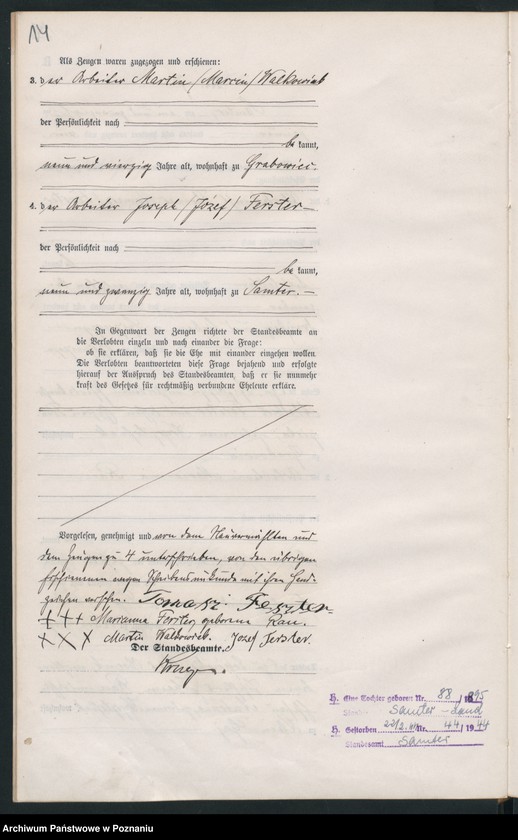 14
Als Zeugen waren zugezogen und erschienen:
3. der Arbeiter Martin /Marcin/ Walkowiak
der Persönlichkeit nach
bekannt,
neun und vierzig Jahre alt, wohnhaft zu Grabowiec.
4. der Arbeiter Joseph /Józef/ Ferster —
der Persönlichkeit nach
bekannt,
neun und zwanzig Jahre alt, wohnhaft zu Samter. —
In Gegenwart der Zeugen richtete der Standesbeamte an
die Verlobten einzeln und nach einander die Frage:
ob sie erklären, daß sie die Ehe mit einander eingehen wollen.
Die Verlobten beantworteten diese Frage bejahend und erfolgte
hierauf der Ausspruch des Standesbeamten, daß er sie nunmehr
kraft des Gesetzes für rechtmäßig verbundene Eheleute erkläre.
Vorgelesen, genehmigt und von dem Neuvermählten und
dem Zeugen zu 4 unterschrieben, von den übrigen
Erschienenen wegen Schreibensunkunde mit ihren Hand-
zeichen versehen. Tomasz Ferster
+++ Marianna Ferster geborene Kau.
XXX Martin Walkowiak. Jozef Ferster.
Der Standesbeamte.
H. Eine Tochter geboren Nr. 88 / 1895
Samter - Land
H. Gestorben Nr. 44 / 1944
Standesamt Samter
Archiwum Państwowe w Poznaniu